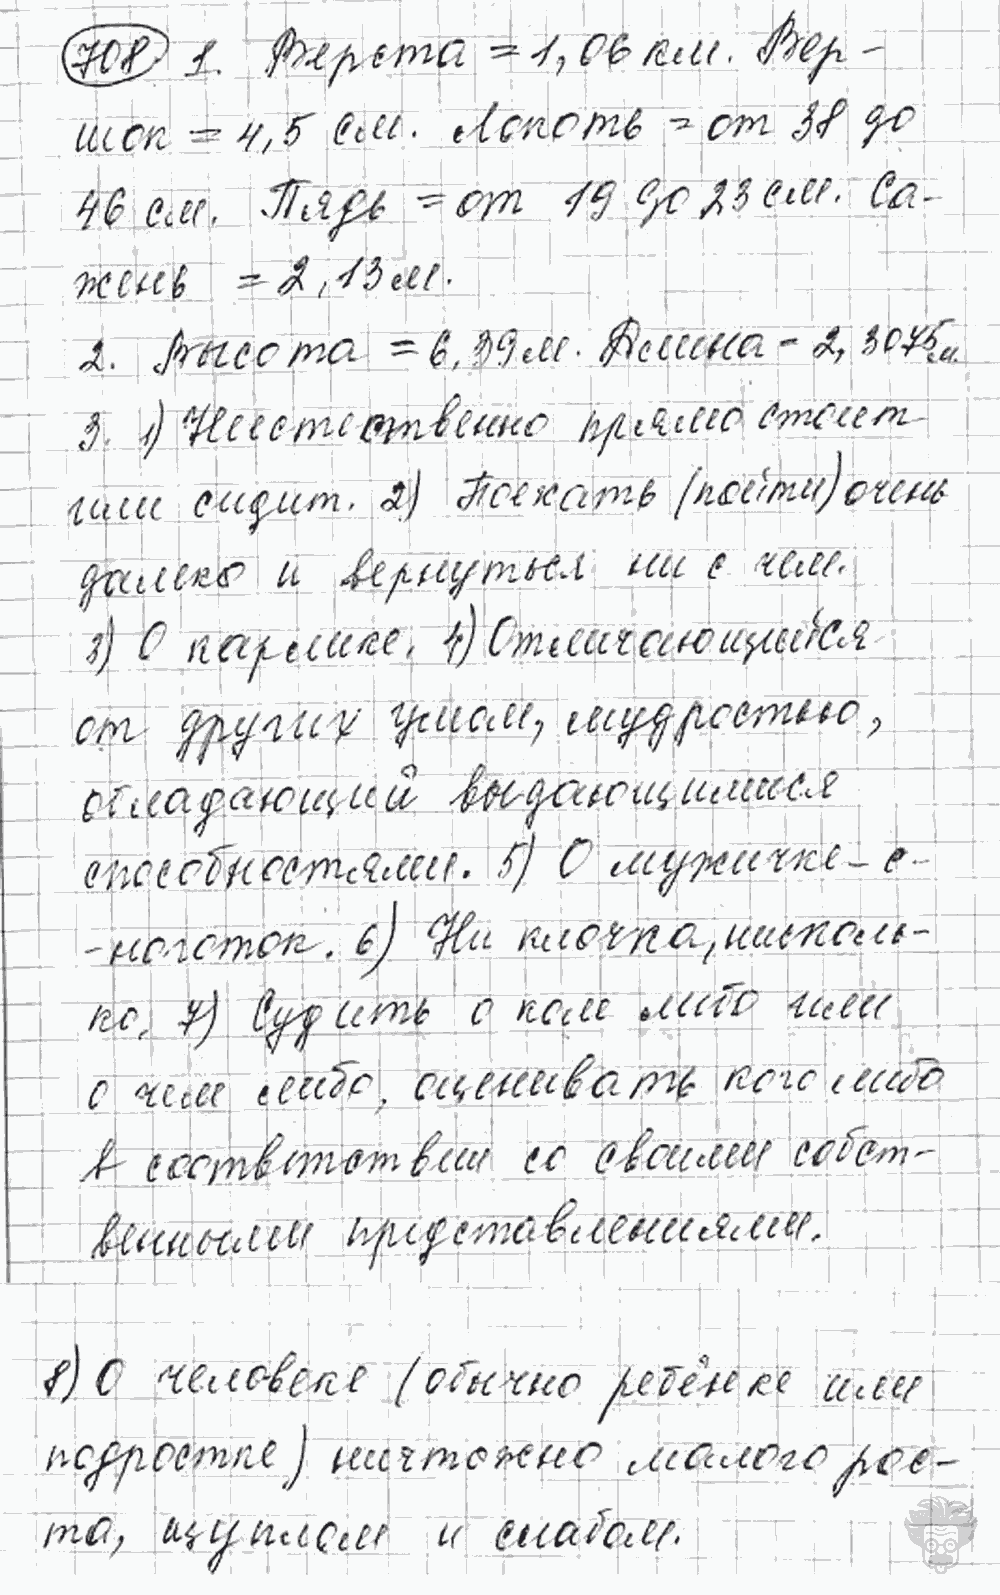 708 1. Верста = 1,06 км. Вер-
шок = 4,5 см. Локоть = от 38 до
46 см. Пядь = от 19 до 23 см. Са-
жень = 2,13 м.
2. Высота = 6,39 м. Длина - 2,3075 м.
3. 1) Неестественно прямо стоит
или сидит. 2) Поехать (пойти) очень
далеко и вернуться ни с чем.
3) О карлике. 4) Отличающийся
от других умом, мудростью,
обладающий выдающимися
способностями. 5) О мужичке-с-
-ноготок. 6) Ни клочка, нисколь-
ко. 7) Судить о ком либо или
о чем либо, оценивать кого либо
в соответствии со своими собст-
венными представлениями.
8) О человеке (обычно ребёнке или
подростке) ничтожно малого рос-
та, щуплом и слабом.